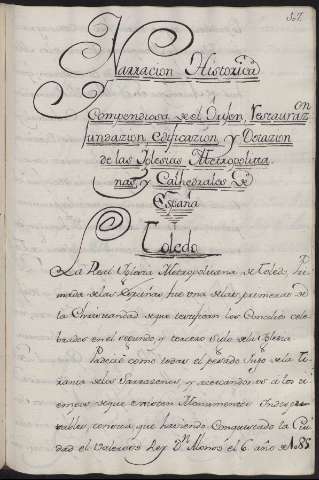 507.
Narracion Historica
Compendiosa de el Orijen, Restauraz.on
fundazion edificazion, y Dotazion
de las Iglesias Metropolita
nas, y Cathedrales de
España
Toledo
La Real Iglesia Metropolitana de Toledo, Pri
mada de las Españas fue una de las primeras de
la Christiandad de que testifican los Concilios cele
brados en el segundo y tercero Siglo de la Iglesia
Padeció como todas el pesado Jugo de la Ti
rania de los Sarracenos, y acercandonos a los ti
empos de que existen Monumentos Indispu
tables, consta que haviendo Conquistado la Ciu
dad el Valeroso Rey D.n Alonso el 6 año de 1085